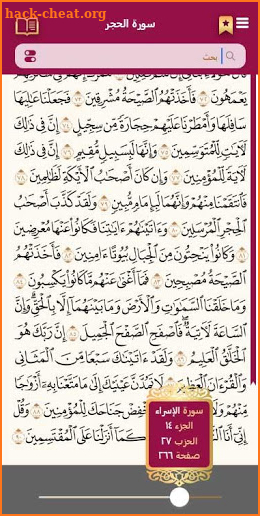 hack-cheat.org
سورة الحجر
بحث
يَعْمَهُونَ ٧٢ فَأَخَذَتْهُمُ ٱلصَّيْحَةُ مُشْرِقِينَ ٧٣ فَجَعَلْنَا عَٰلِيَهَا
سَافِلَهَا وَأَمْطَرْنَا عَلَيْهِمْ حِجَارَةً مِّن سِجِّيلٍ ٧٤ إِنَّ فِي ذَٰلِكَ
لَأٓيَٰتٍ لِّلْمُتَوَسِّمِينَ ٧٥ وَإِنَّهَا لَبِسَبِيلٍ مُّقِيمٍ ٧٦ إِنَّ فِي ذَٰلِكَ
لَأٓيَةً لِّلْمُؤْمِنِينَ ٧٧ وَإِن كَانَ أَصْحَٰبُ ٱلْأَيْكَةِ لَظَٰلِمِينَ ٧٨
فَٱنتَقَمْنَا مِنْهُمْ وَإِنَّهُمَا لَبِإِمَامٍ مُّبِينٍ ٧٩ وَلَقَدْ كَذَّبَ أَصْحَٰبُ
ٱلْحِجْرِ ٱلْمُرْسَلِينَ ٨٠ وَءَاتَيْنَٰهُمْ ءَايَٰتِنَا فَكَانُوا۟ عَنْهَا مُعْرِضِينَ
٨١ وَكَانُوا۟ يَنْحِتُونَ مِنَ ٱلْجِبَالِ بُيُوتًا ءَامِنِينَ ٨٢ فَأَخَذَتْهُمُ
ٱلصَّيْحَةُ مُصْبِحِينَ ٨٣ فَمَآ أَغْنَىٰ عَنْهُم مَّا كَانُوا۟ يَكْسِبُونَ ٨٤
وَمَا خَلَقْنَا ٱلسَّمَٰوَٰتِ وَٱلْأَرْضَ وَمَا بَيْنَهُمَآ إِلَّا بِٱلْحَقِّ ۗ وَإِنَّ
ٱلسَّاعَةَ لَأٓتِيَةٌ ۖ فَٱصْفَحِ ٱلصَّفْحَ ٱلْجَمِيلَ ٨٥ إِنَّ رَبَّكَ هُوَ
ٱلْخَلَّٰقُ ٱلْعَلِيمُ ٨٦ وَلَقَدْ ءَاتَيْنَٰكَ سَبْعًا مِّنَ ٱلْمَثَانِي
وَٱلْقُرْءَانَ ٱلْعَظِيمَ ٨٧ لَا تَمُدَّنَّ عَيْنَيْكَ إِلَىٰ مَا مَتَّعْنَا بِهِۦٓ أَزْوَٰجًا
مِّنْهُمْ وَلَا خْفِضْ جَنَاحَكَ لِلْمُؤْمِنِينَ ٨٨ وَقُلْ
إِنِّيٓ أَنَا كَمَآ أَنزَلْنَا عَلَى ٱلْمُقْتَسِمِينَ ٩٠
سورة الإسراء
الجزء ١٤
الحزب ٢٧
صفحة ٢٦٦
hack-cheat.org